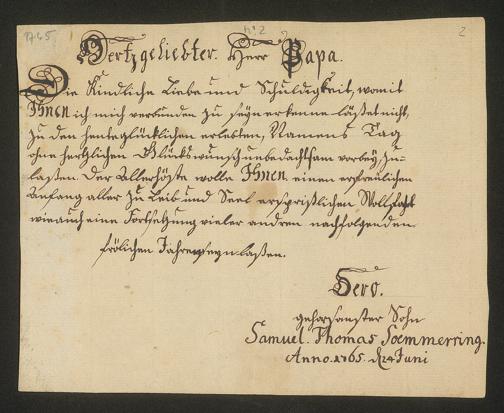 1765. No 2 2
Hertzgeliebter. Herr Papa.
Die Kindliche Liebe und Schuldigkeit, womit
Ihnen ich mich verbunden zu seyn erkenne läßet nicht,
zu den heute glücklichen erlebten, Namens Tag
ohne hertzlichen Glückswunsch unbedachtsam vorbey zu-
laßen. Der Allerhöste wolle Ihnen einen erfreulichen
Anfang aller zu Leib und Seel ersprißlichen Wollfahrt
wie auch eine Fortsetzung vieler andren nachfolgenden
frölichen Jahren seyn laßen.
Dero.
gehorsamster Sohn
Samuel. Thomas Soemmerring.
Anno. 1765. d 24 Juni